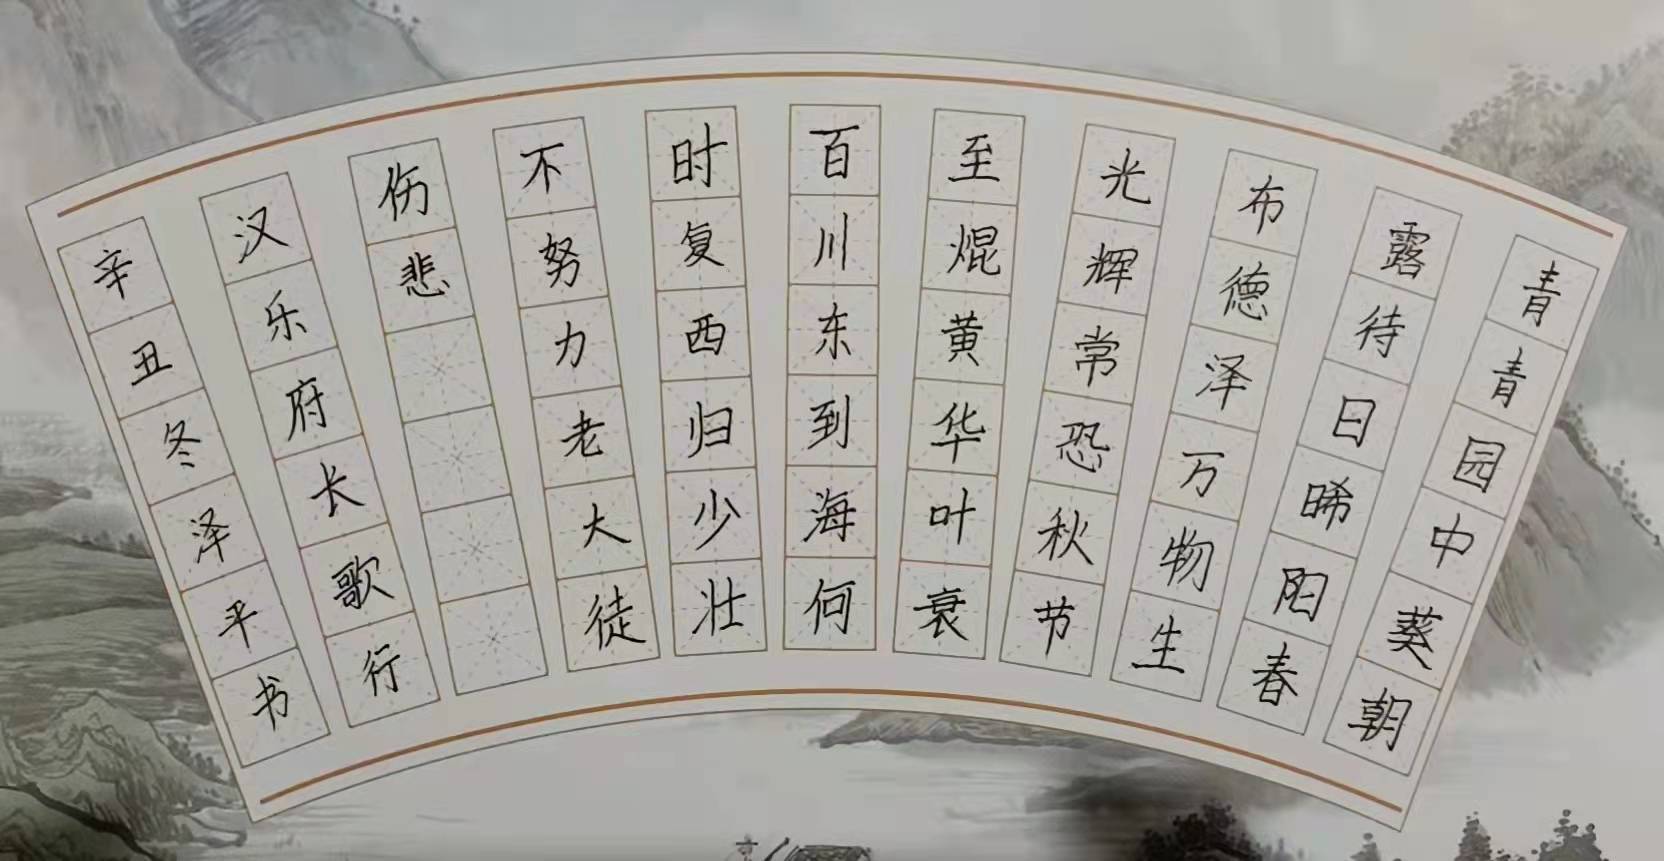 青青园中葵朝
露待日晞阳春
布德泽万物生
光辉常恐秋节
至焜黄华叶衰
百川东到海何
时复西归少壮
不努力老大徒
伤悲
汉乐府长歌行
辛丑冬泽平书